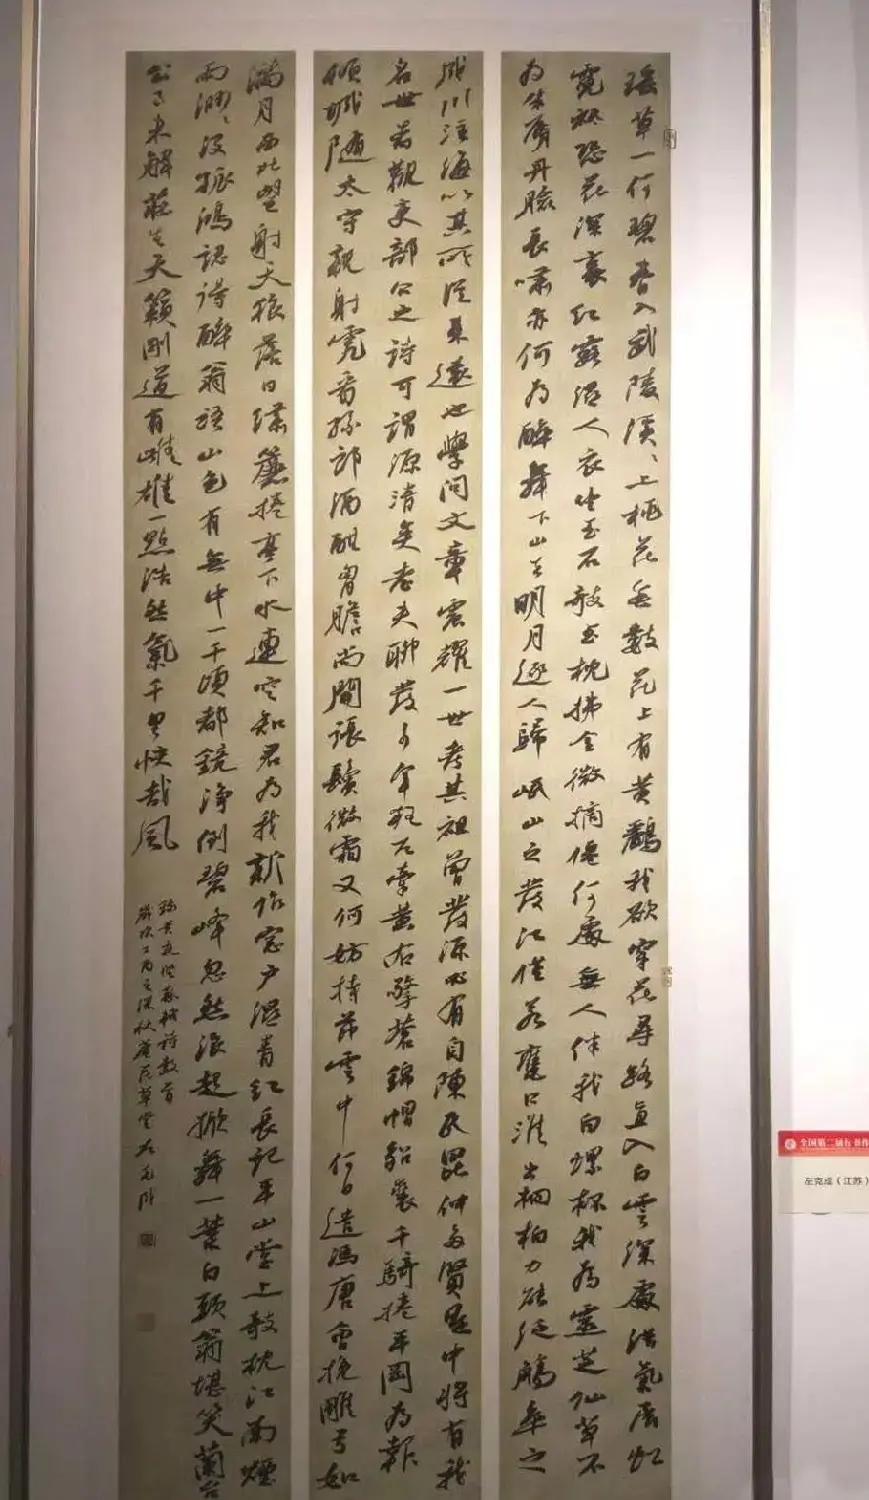 瑶草一何碧春入武陵溪、上桃花無數花上有黄鸝我欲穿花尋路直入白雲深處浩氣展虹
霓秖恐花深裏紅露溼人衣坐玉石欹玉枕拂金徽謫僊何處無人伴我白螺杯我為靈芝仙草不
为朱脣丹臉長嘯亦何为醉舞下山去明月逐人歸 岷山之發江僅若甕口淮出桐柏力能泛觴卒之
成川注海以其所從來遠也學問文章震耀一世考其祖曾發源必有自陳氏昆仲多賢是中將有我
名世者觀吏部公之詩可謂源清矣老夫聊發少年狂左牽黄右擎蒼錦帽貂裘千騎捲平岡为報
傾城隨太守親射虎看孫郎酒酣胷膽尚開張鬢微霜又何妨持節雲中何日遣馮唐會挽雕弓如
滿月西北望射天狼落日繡簾捲亭下水連空知君为我新作窓户溼青紅長記平山堂上欹枕江南煙
雨渺、没孤鴻認得醉翁語山色有無中一千頃都鏡淨倒碧峰忽然浪起掀舞一葉白頭翁堪笑蘭台
公子未解莊生天籟剛道有雌雄一點浩然氣千里快哉風
録黄庭堅蘇軾詩數首
歲次丁酉之深秋草堂左克成
全国第二届行书作
左克成（江苏）